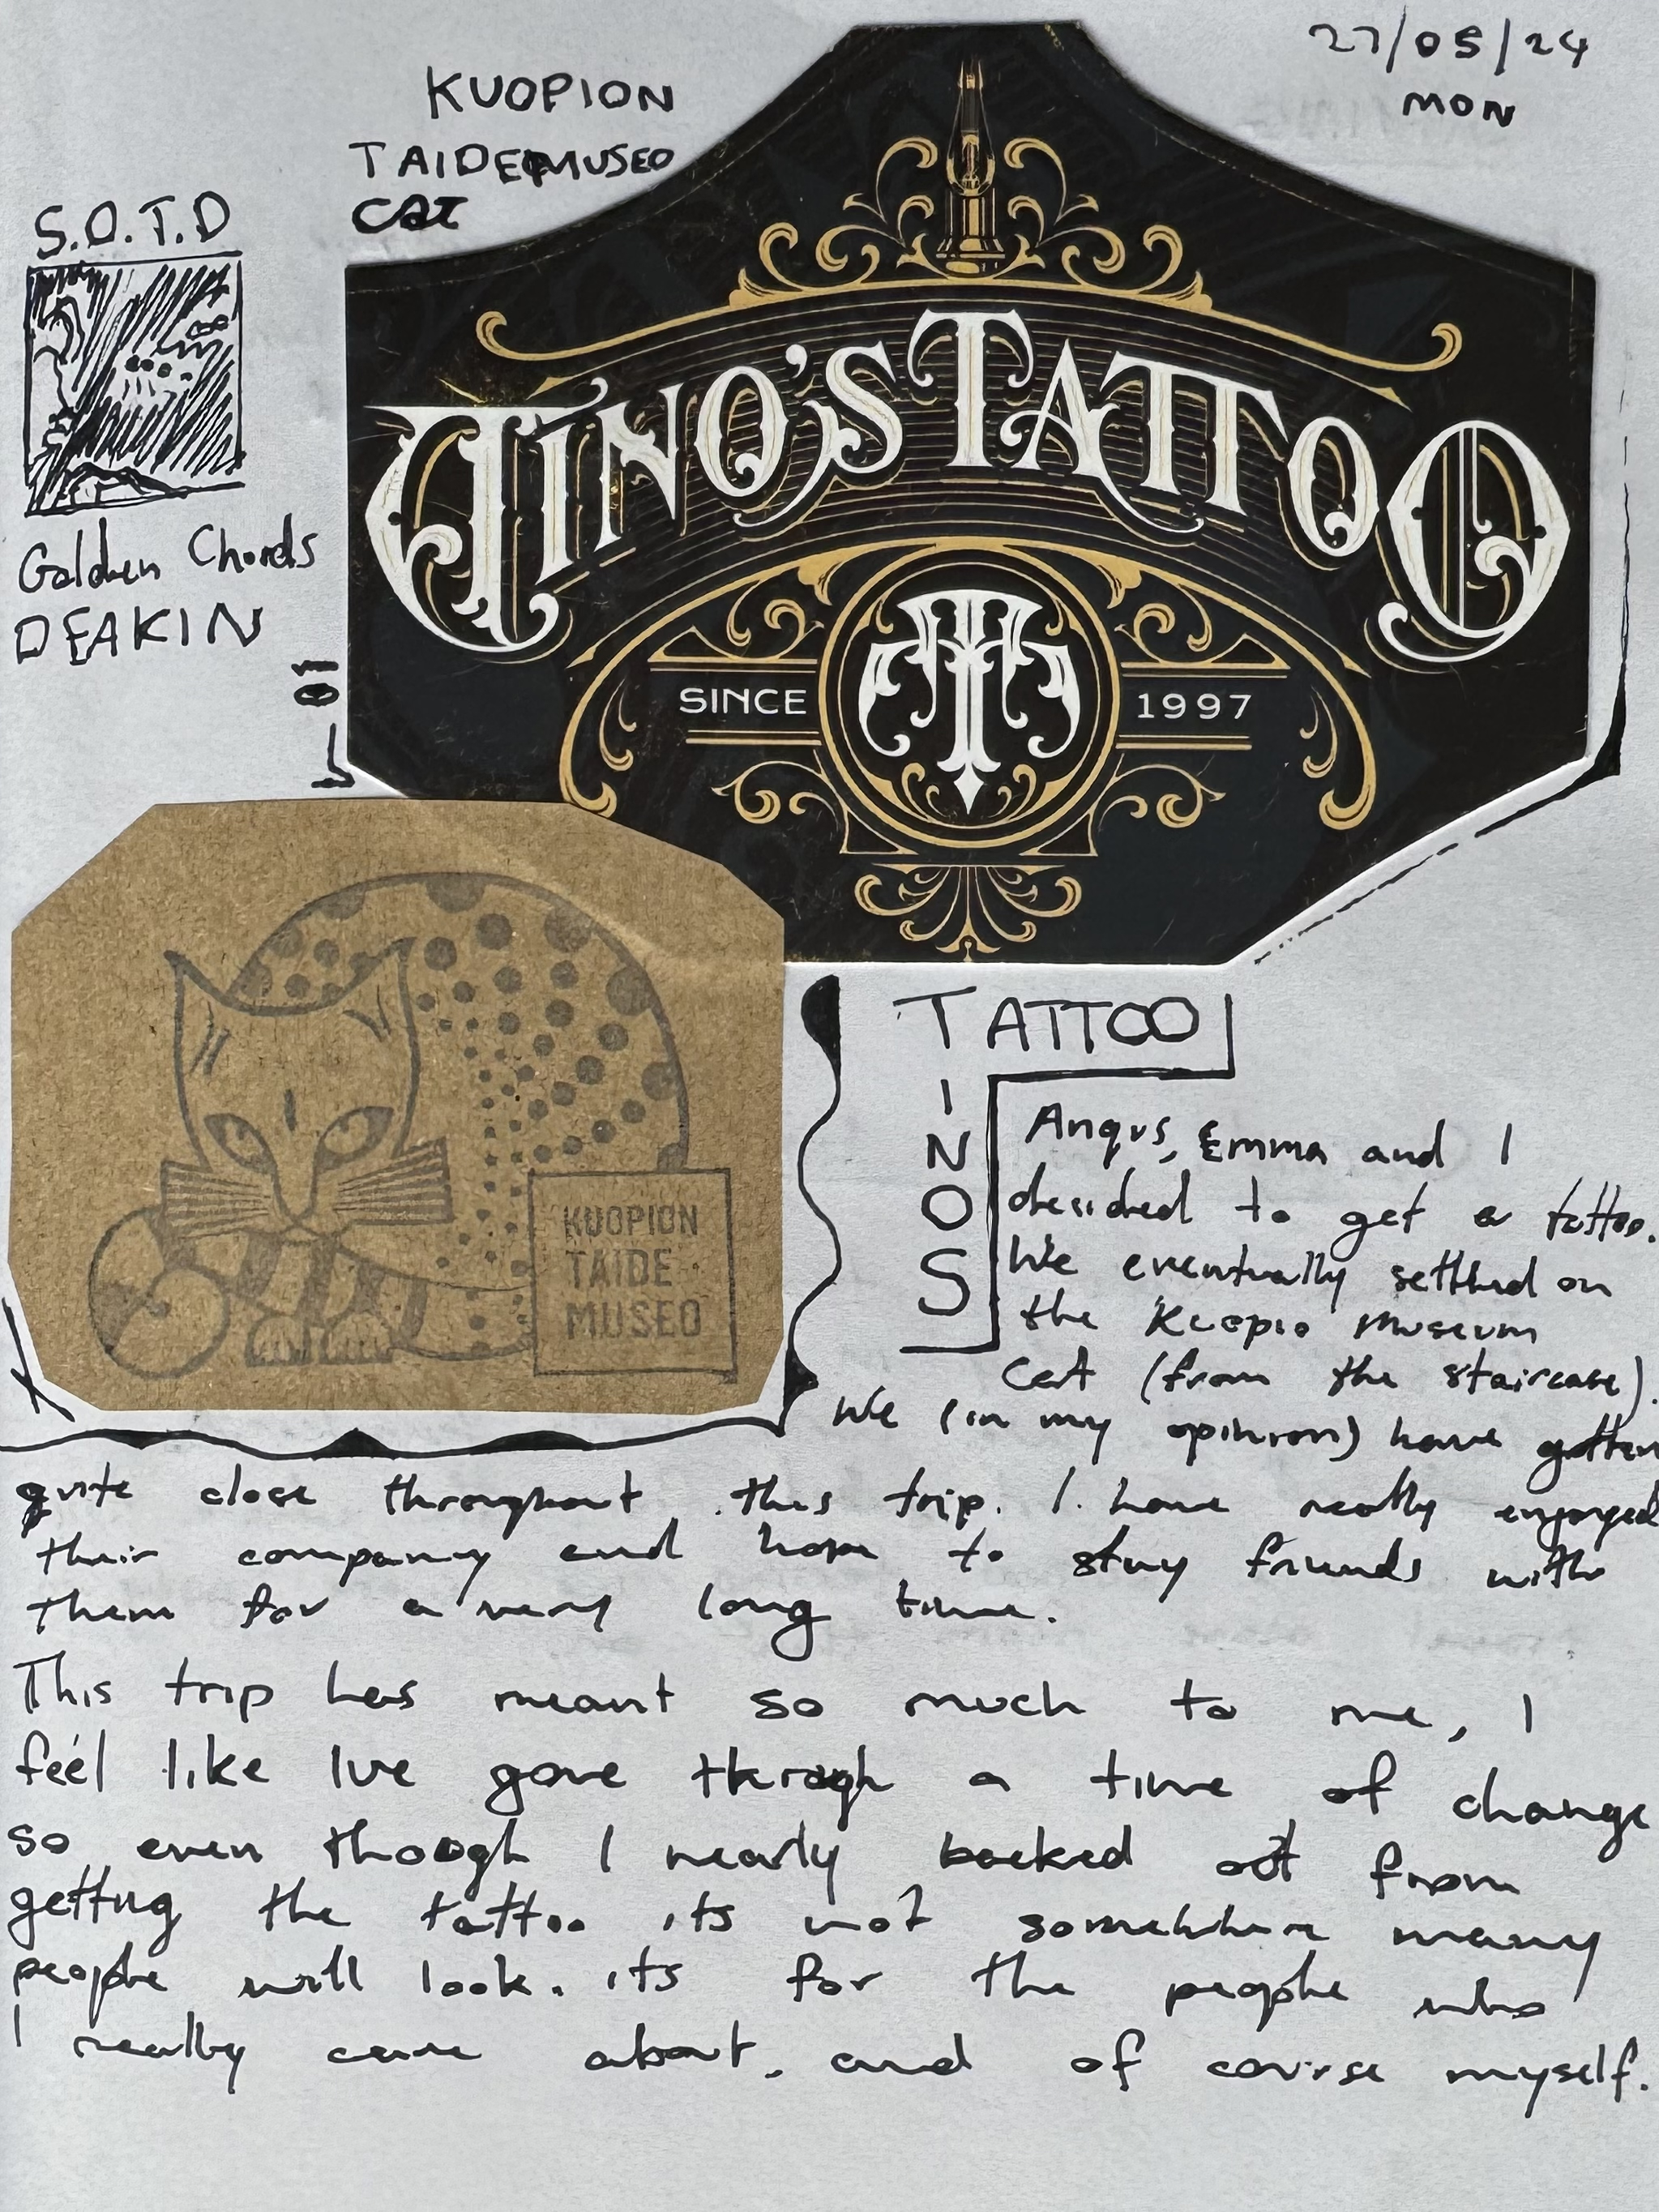 27/05/24
MON
KUOPION
TAIDEMUSEO
CAT
S.O.T.D
Golden Chords
DEAKIN
TINO'S TATTOO
SINCE 1997
KUOPION
TAIDE
MUSEO
TATTOO
TINOS
Angus, Emma and I
decided to get a tattoo.
We eventually settled on
the Kuopio Museum
Cat (from the staircase).
We (in my opinion) have gotten
quite close throughout this trip. I have really enjoyed
their company and hope to stay friends with
them for a very long time.
This trip has meant so much to me, I
feel like Ive gone through a time of change
so even though I nearly backed out from
getting the tattoo its not somewhere many
people will look. its for the people who
I really care about, and of course myself.